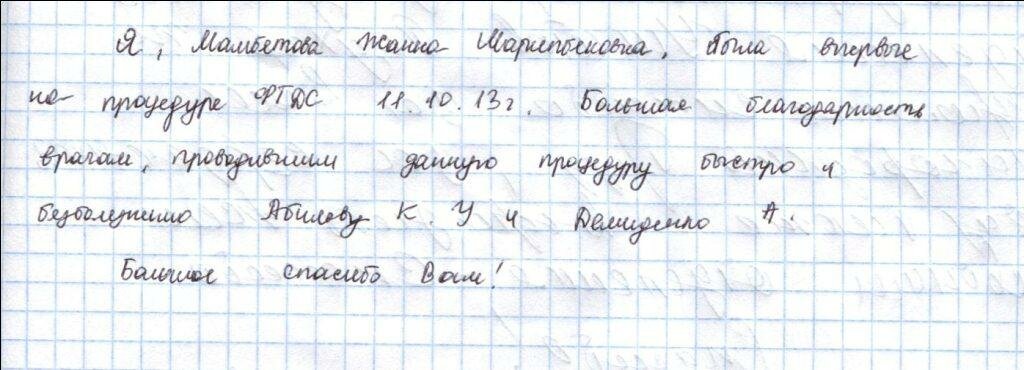 Я, Мамбетова Жанна Шаршенбековна, была впервые
на процедуре ФГДС 11.10.13г. Большая благодарность
врачам, проводившим данную процедуру быстро и
безболезненно Абилову К.У и Демиденко А.
Большое спасибо Вам!